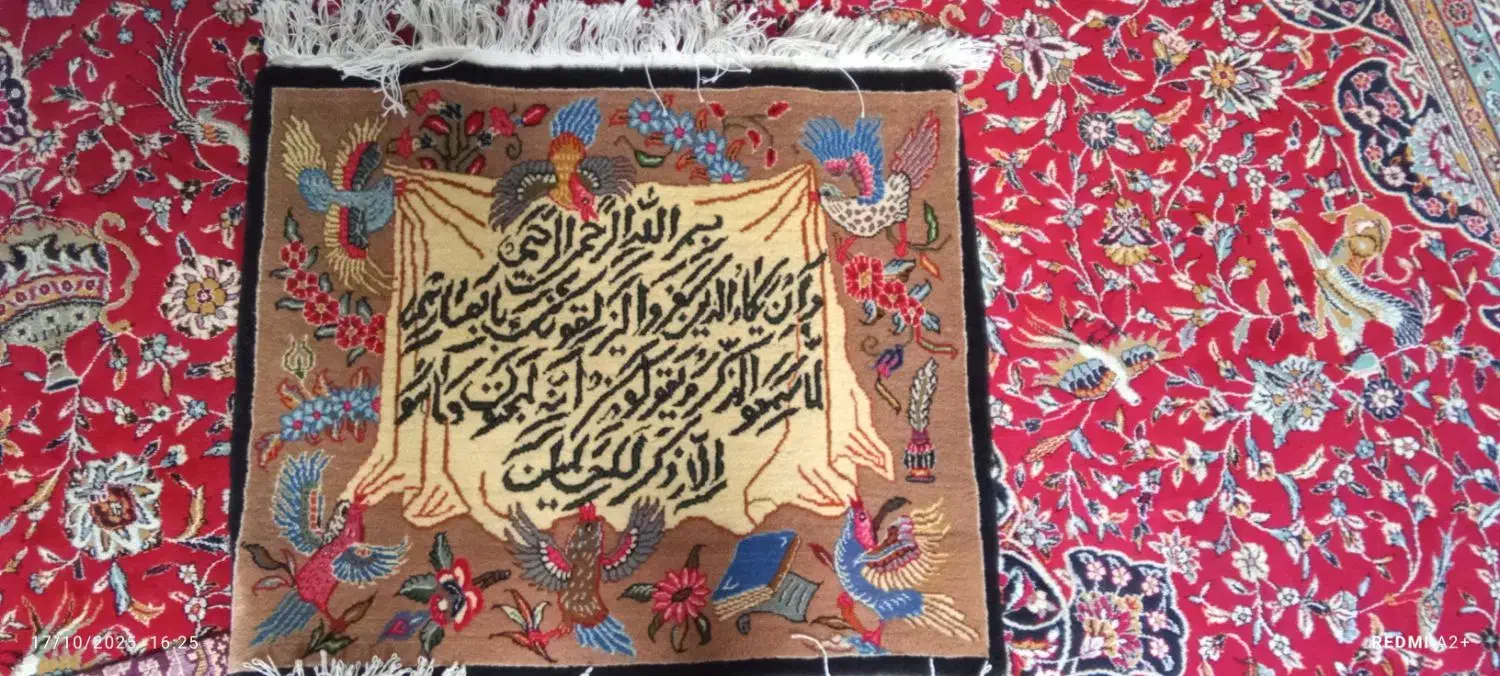 بسم الله الرحمن الرحيم
وان يكاد الذين كفروا ليزلقونك بابصارهم
لما سمعوا الذكر ويقولون انه لمجنون وما هو
الا ذكر للعالمين
17/10/2025 16:25
REDMI A2+